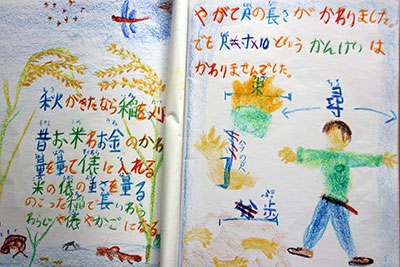 秋がきたなら稲を刈り
昔お米わお金のかわ
量を量て俵に入れる
米の俵の重さを量る
のこった稲で長いわら
わらじや俵やかごになる
やがて尺の長さがかわりました。
でも尺=寸×10というかんけいは
かわりませんでした。
束
尋
歩